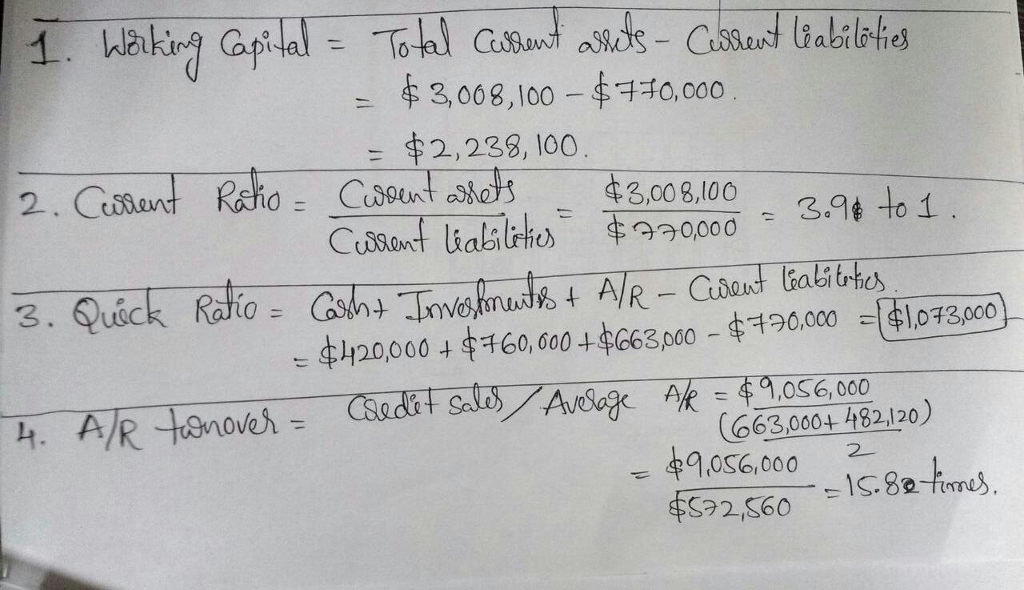 1. Working Capital = Total Current assets - Current liabilities
= $3,008,100 - $770,000.
= $2,238,100.
2. Current Ratio = Current assets / Current liabilities = $3,008,100 / $770,000 = 3.9 to 1.
3. Quick Ratio = Cash + Investments + A/R - Current liabilities
= $420,000 + $760,000 + $663,000 - $770,000 = $1,073,000
4. A/R turnover = Credit sales / Average A/R = $9,056,000 / (663,000 + 482,120) / 2
= $9,056,000 / $572,560 = 15.82 times.